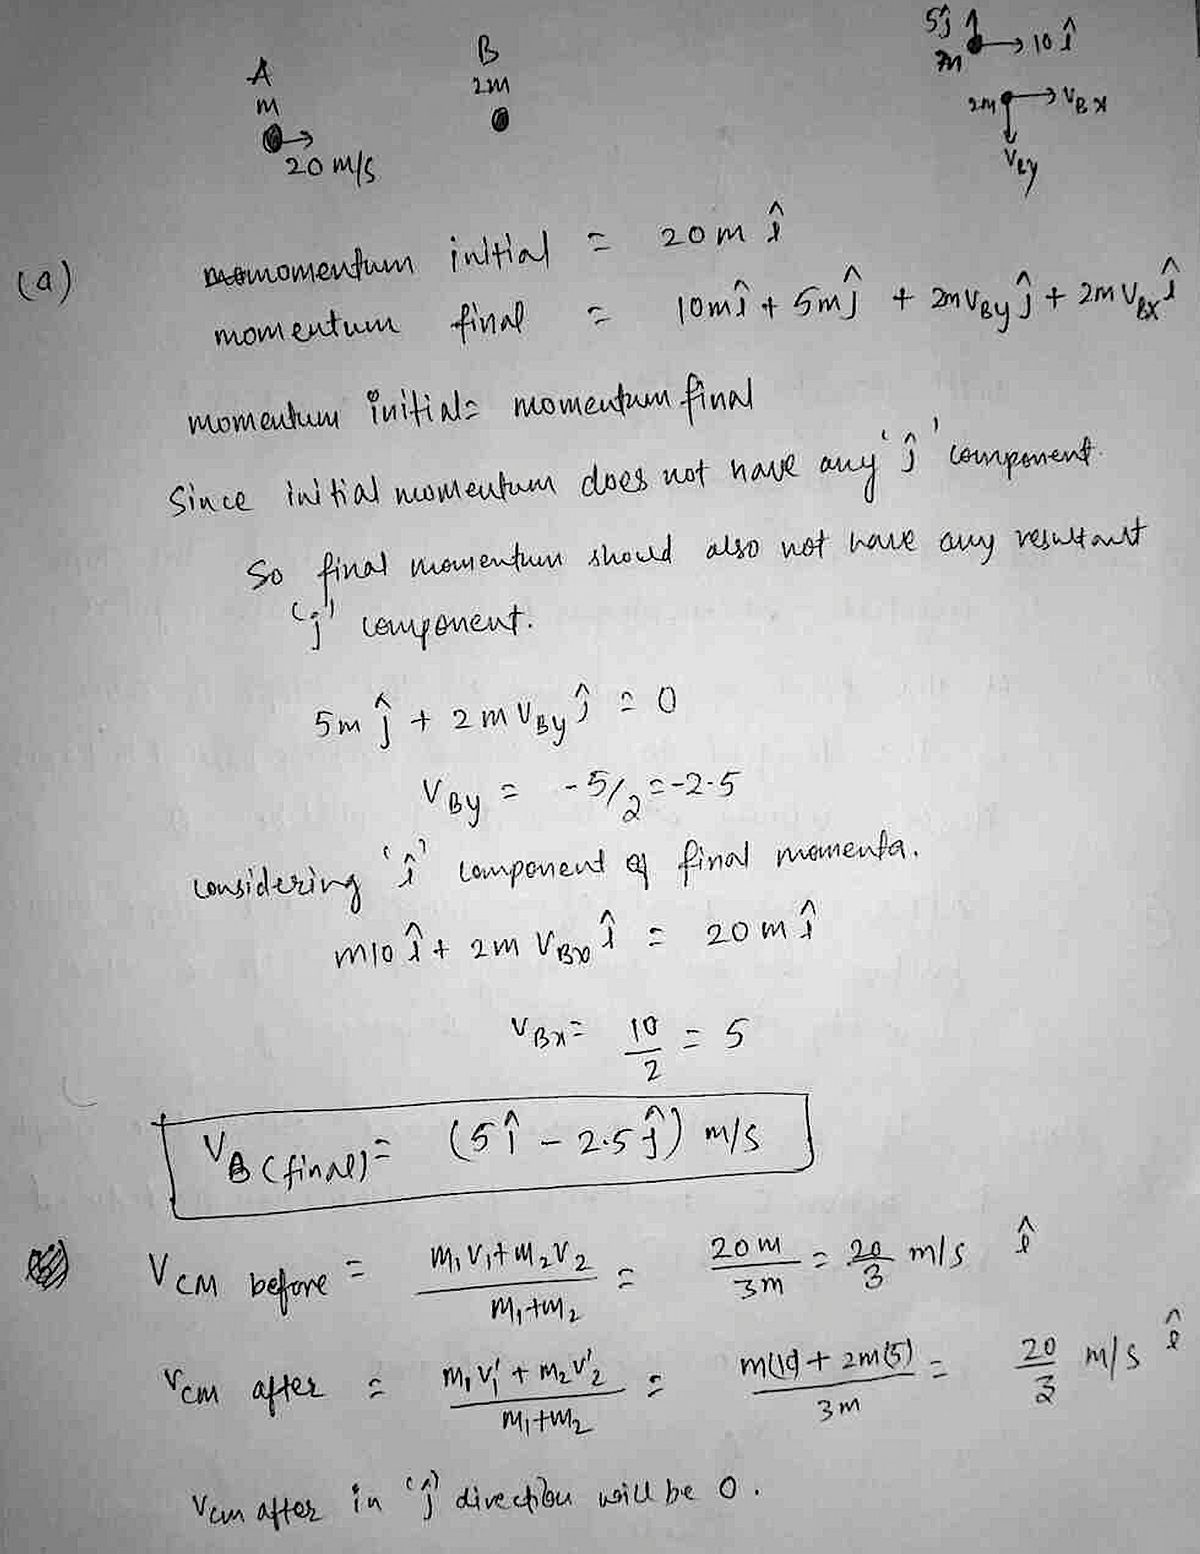 A
m
20 m/s
B
2m
5ĵ
m
10 î
2m
V_Bx
V_By
(a) momentum initial = 20m î
momentum final = 10mî + 5mĵ + 2mV_By ĵ + 2mV_Bx î
momentum initial = momentum final
Since initial momentum does not have any 'ĵ' component.
So final momentum should also not have any resultant
'ĵ' component.
5m ĵ + 2mV_By ĵ = 0
V_By = -5/2 = -2.5
considering 'î' component of final momenta.
m10 î + 2m V_Bx î = 20m î
V_Bx = 10/2 = 5
V_B(final) = (5î - 2.5ĵ) m/s
V_CM before = (m₁v₁+m₂v₂)/(m₁+m₂) = 20m/3m = 20/3 m/s î
V_cm after = (m₁v₁'+m₂v₂')/(m₁+m₂) = (m(10)+2m(5))/3m = 20/3 m/s î
V_cm after in 'ĵ' direction will be 0.